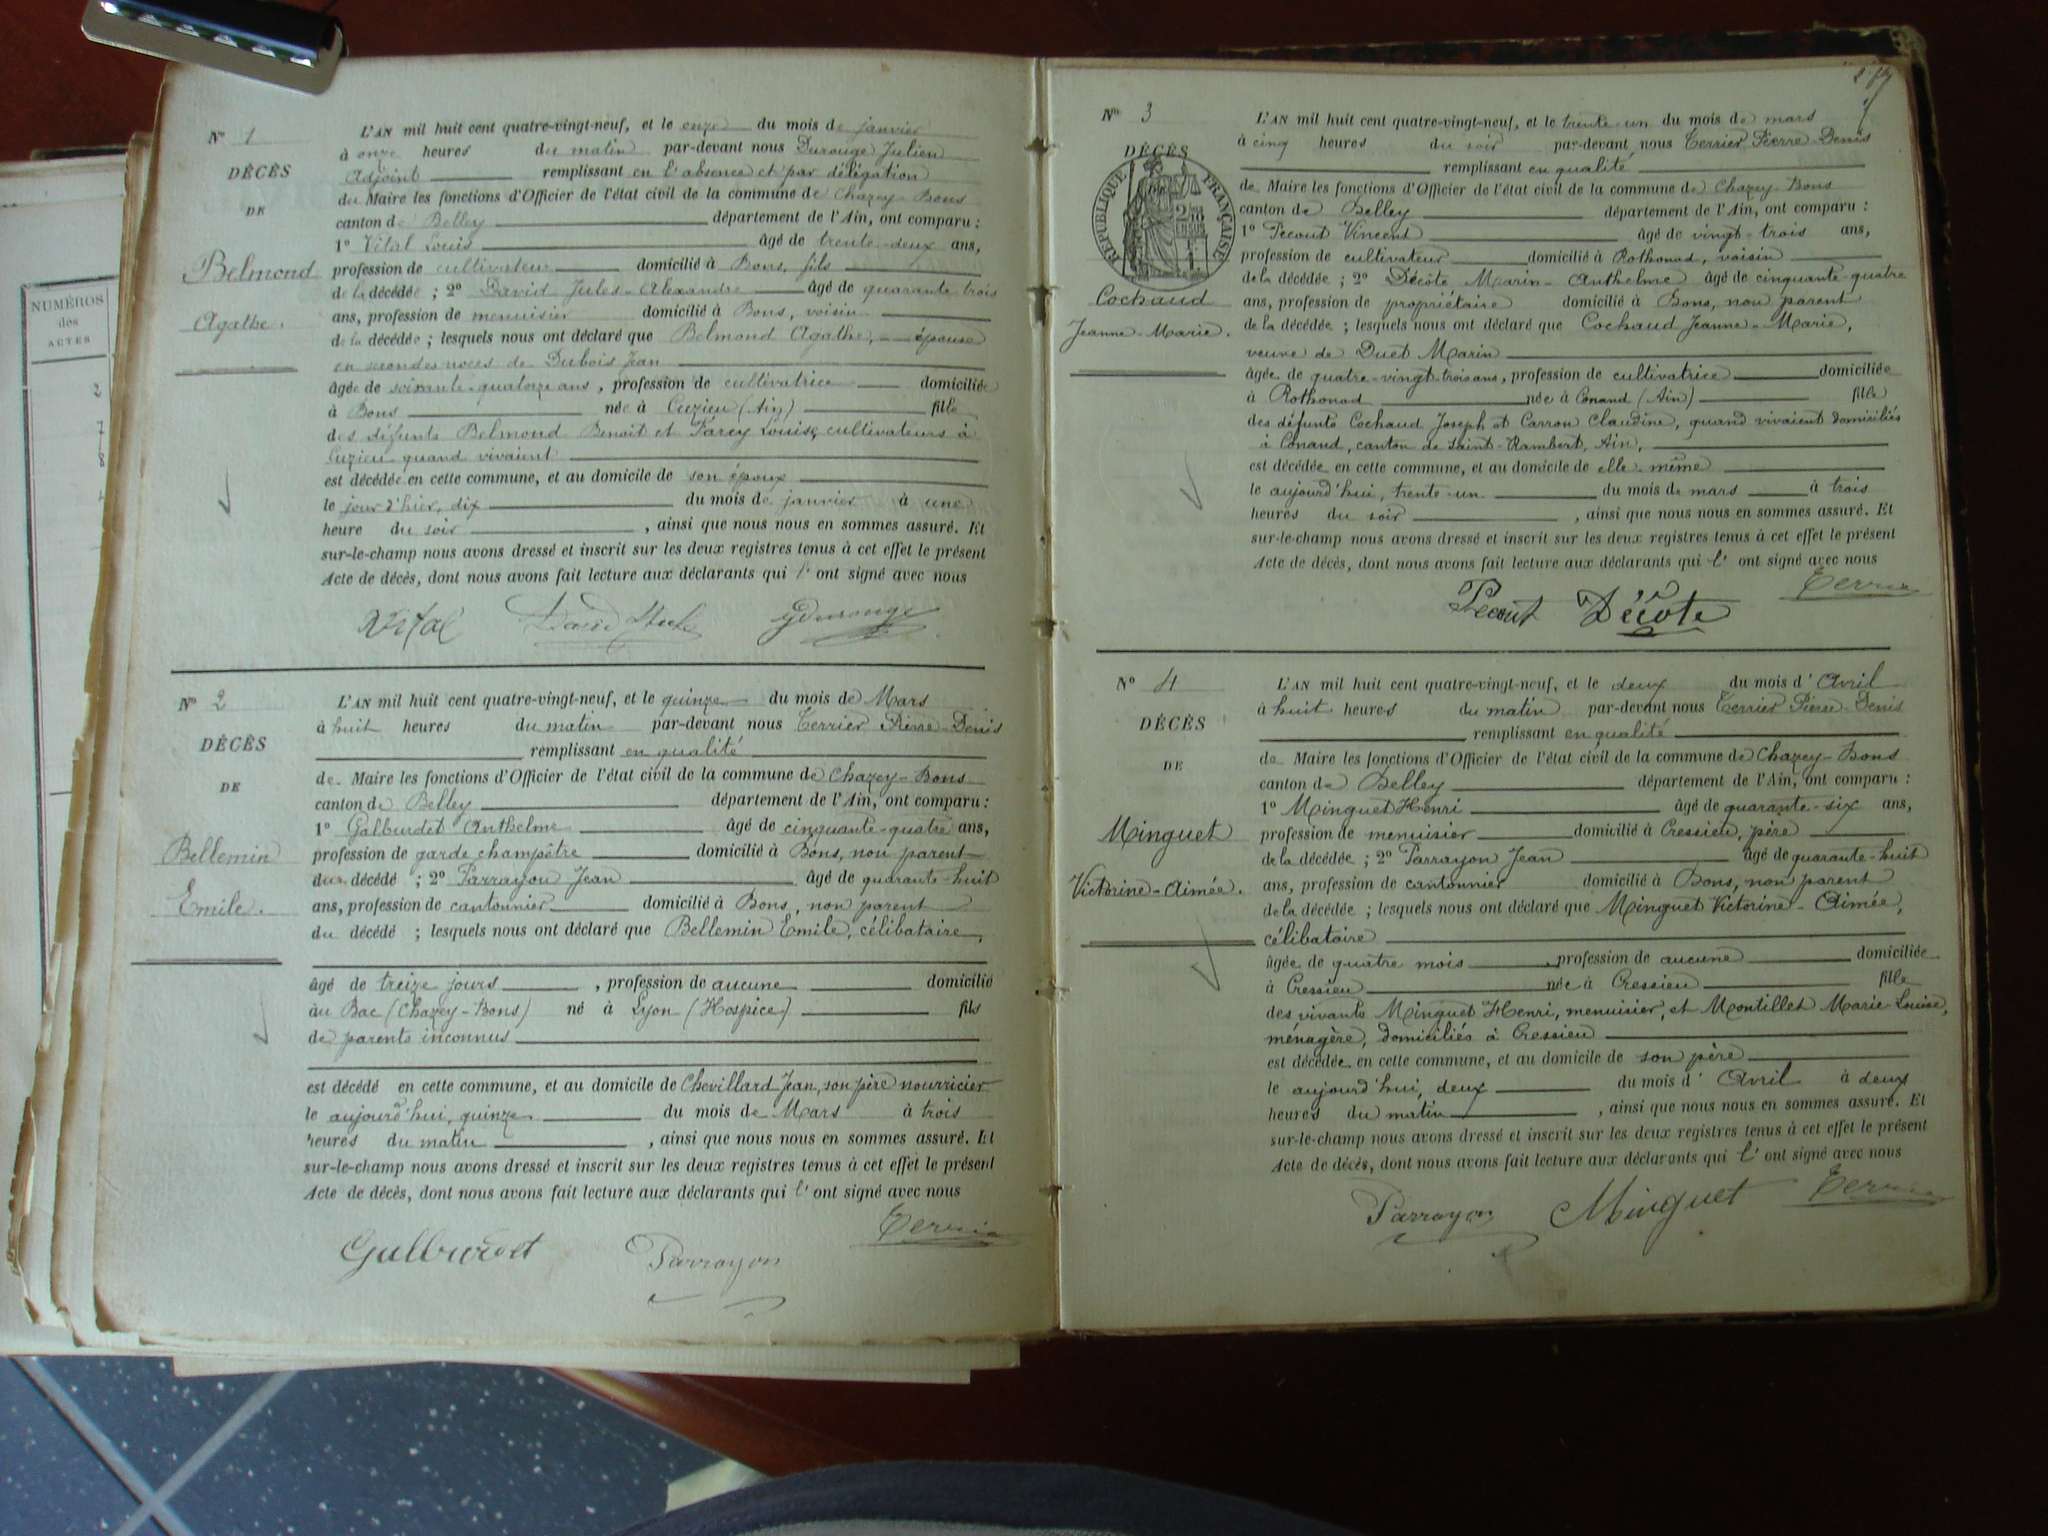 NUMÉROS
des
ACTES
2
7
8
Nº 1
DÉCÈS
DE
Belmond
Agathe.
L'AN mil huit cent quatre-vingt-neuf, et le onze du mois de janvier
à onze heures du matin par-devant nous Durouge Julien
Adjoint remplissant en l'absence et par délégation
du Maire les fonctions d'Officier de l'état civil de la commune de Chazey-Bons
canton de Belley département de l'Ain, ont comparu :
1º Vital Louis âgé de trente-deux ans,
profession de cultivateur domicilié à Bons, fils
de la décédée ; 2º David Jules-Alexandre âgé de quarante trois
ans, profession de menuisier domicilié à Bons, voisin
de la décédée ; lesquels nous ont déclaré que Belmond Agathe, épouse
en secondes noces de Dubois Jean
âgée de soixante-quatorze ans, profession de cultivatrice domiciliée
à Bons née à Cuzieu (Ain) fille
des défunts Belmond Benoît et Parcy Louise, cultivateurs à
Cuzieu quand vivaient
est décédée en cette commune, et au domicile de son époux
le jour d'hier, dix du mois de janvier à une
heure du soir , ainsi que nous nous en sommes assuré. Et
sur-le-champ nous avons dressé et inscrit sur les deux registres tenus à cet effet le présent
Acte de décès, dont nous avons fait lecture aux déclarants qui l' ont signé avec nous
Vital David Jules JDurouge
Nº 2
DÉCÈS
DE
Bellemin
Emile.
L'AN mil huit cent quatre-vingt-neuf, et le quinze du mois de Mars
à huit heures du matin par-devant nous Terrier Pierre-Denis
remplissant en qualité
de Maire les fonctions d'Officier de l'état civil de la commune de Chazey-Bons
canton de Belley département de l'Ain, ont comparu :
1º Galburdet Anthelme âgé de cinquante-quatre ans,
profession de garde champêtre domicilié à Bons, non parent
du décédé ; 2º Parrayon Jean âgé de quarante-huit
ans, profession de cantonnier domicilié à Bons, non parent
du décédé ; lesquels nous ont déclaré que Bellemin Emile, célibataire,
âgé de treize jours , profession de aucune domicilié
au Bac (Chazey-Bons) né à Lyon (Hospice) fils
de parents inconnus
est décédé en cette commune, et au domicile de Chevillard Jean, son père nourricier
le aujourd'hui, quinze du mois de Mars à trois
heures du matin , ainsi que nous nous en sommes assuré. Et
sur-le-champ nous avons dressé et inscrit sur les deux registres tenus à cet effet le présent
Acte de décès, dont nous avons fait lecture aux déclarants qui l' ont signé avec nous
Terrier
Galburdet Parrayon
Nº 3
DÉCÈS
RÉPUBLIQUE FRANÇAISE
Cochaud
Jeanne-Marie.
L'AN mil huit cent quatre-vingt-neuf, et le trente-un du mois de mars
à cinq heures du soir par-devant nous Terrier Pierre-Denis
remplissant en qualité
de Maire les fonctions d'Officier de l'état civil de la commune de Chazey-Bons
canton de Belley département de l'Ain, ont comparu :
1º Pecout Vincent âgé de vingt-trois ans,
profession de cultivateur domicilié à Rothonod, voisin
de la décédée ; 2º Décôte Marin-Anthelme âgé de cinquante-quatre
ans, profession de propriétaire domicilié à Bons, non parent
de la décédée ; lesquels nous ont déclaré que Cochaud Jeanne-Marie,
veuve de Duet Marin
âgée de quatre-vingt-trois ans, profession de cultivatrice domiciliée
à Rothonod née à Conand (Ain) fille
des défunts Cochaud Joseph et Carron Claudine, quand vivaient domiciliés
à Conand, canton de Saint-Rambert, Ain,
est décédée en cette commune, et au domicile de elle-même
le aujourd'hui, trente-un du mois de mars à trois
heures du soir , ainsi que nous nous en sommes assuré. Et
sur-le-champ nous avons dressé et inscrit sur les deux registres tenus à cet effet le présent
Acte de décès, dont nous avons fait lecture aux déclarants qui l' ont signé avec nous
Terrier
Pecout Décote
Nº 4
DÉCÈS
DE
Minguet
Victorine-Aimée.
L'AN mil huit cent quatre-vingt-neuf, et le deux du mois d' Avril
à huit heures du matin par-devant nous Terrier Pierre-Denis
remplissant en qualité
de Maire les fonctions d'Officier de l'état civil de la commune de Chazey-Bons
canton de Belley département de l'Ain, ont comparu :
1º Minguet Henri âgé de quarante-six ans,
profession de menuisier domicilié à Cressieu, père
de la décédée ; 2º Parrayon Jean âgé de quarante-huit
ans, profession de cantonnier domicilié à Bons, non parent
de la décédée ; lesquels nous ont déclaré que Minguet Victorine-Aimée,
célibataire
âgée de quatre mois , profession de aucune domiciliée
à Cressieu née à Cressieu fille
des vivants Minguet Henri, menuisier, et Montillet Marie-Louise,
ménagère, domiciliés à Cressieu
est décédée en cette commune, et au domicile de son père
le aujourd'hui, deux du mois d' Avril à deux
heures du matin , ainsi que nous nous en sommes assuré. Et
sur-le-champ nous avons dressé et inscrit sur les deux registres tenus à cet effet le présent
Acte de décès, dont nous avons fait lecture aux déclarants qui l' ont signé avec nous
Terrier
Parrayon Minguet